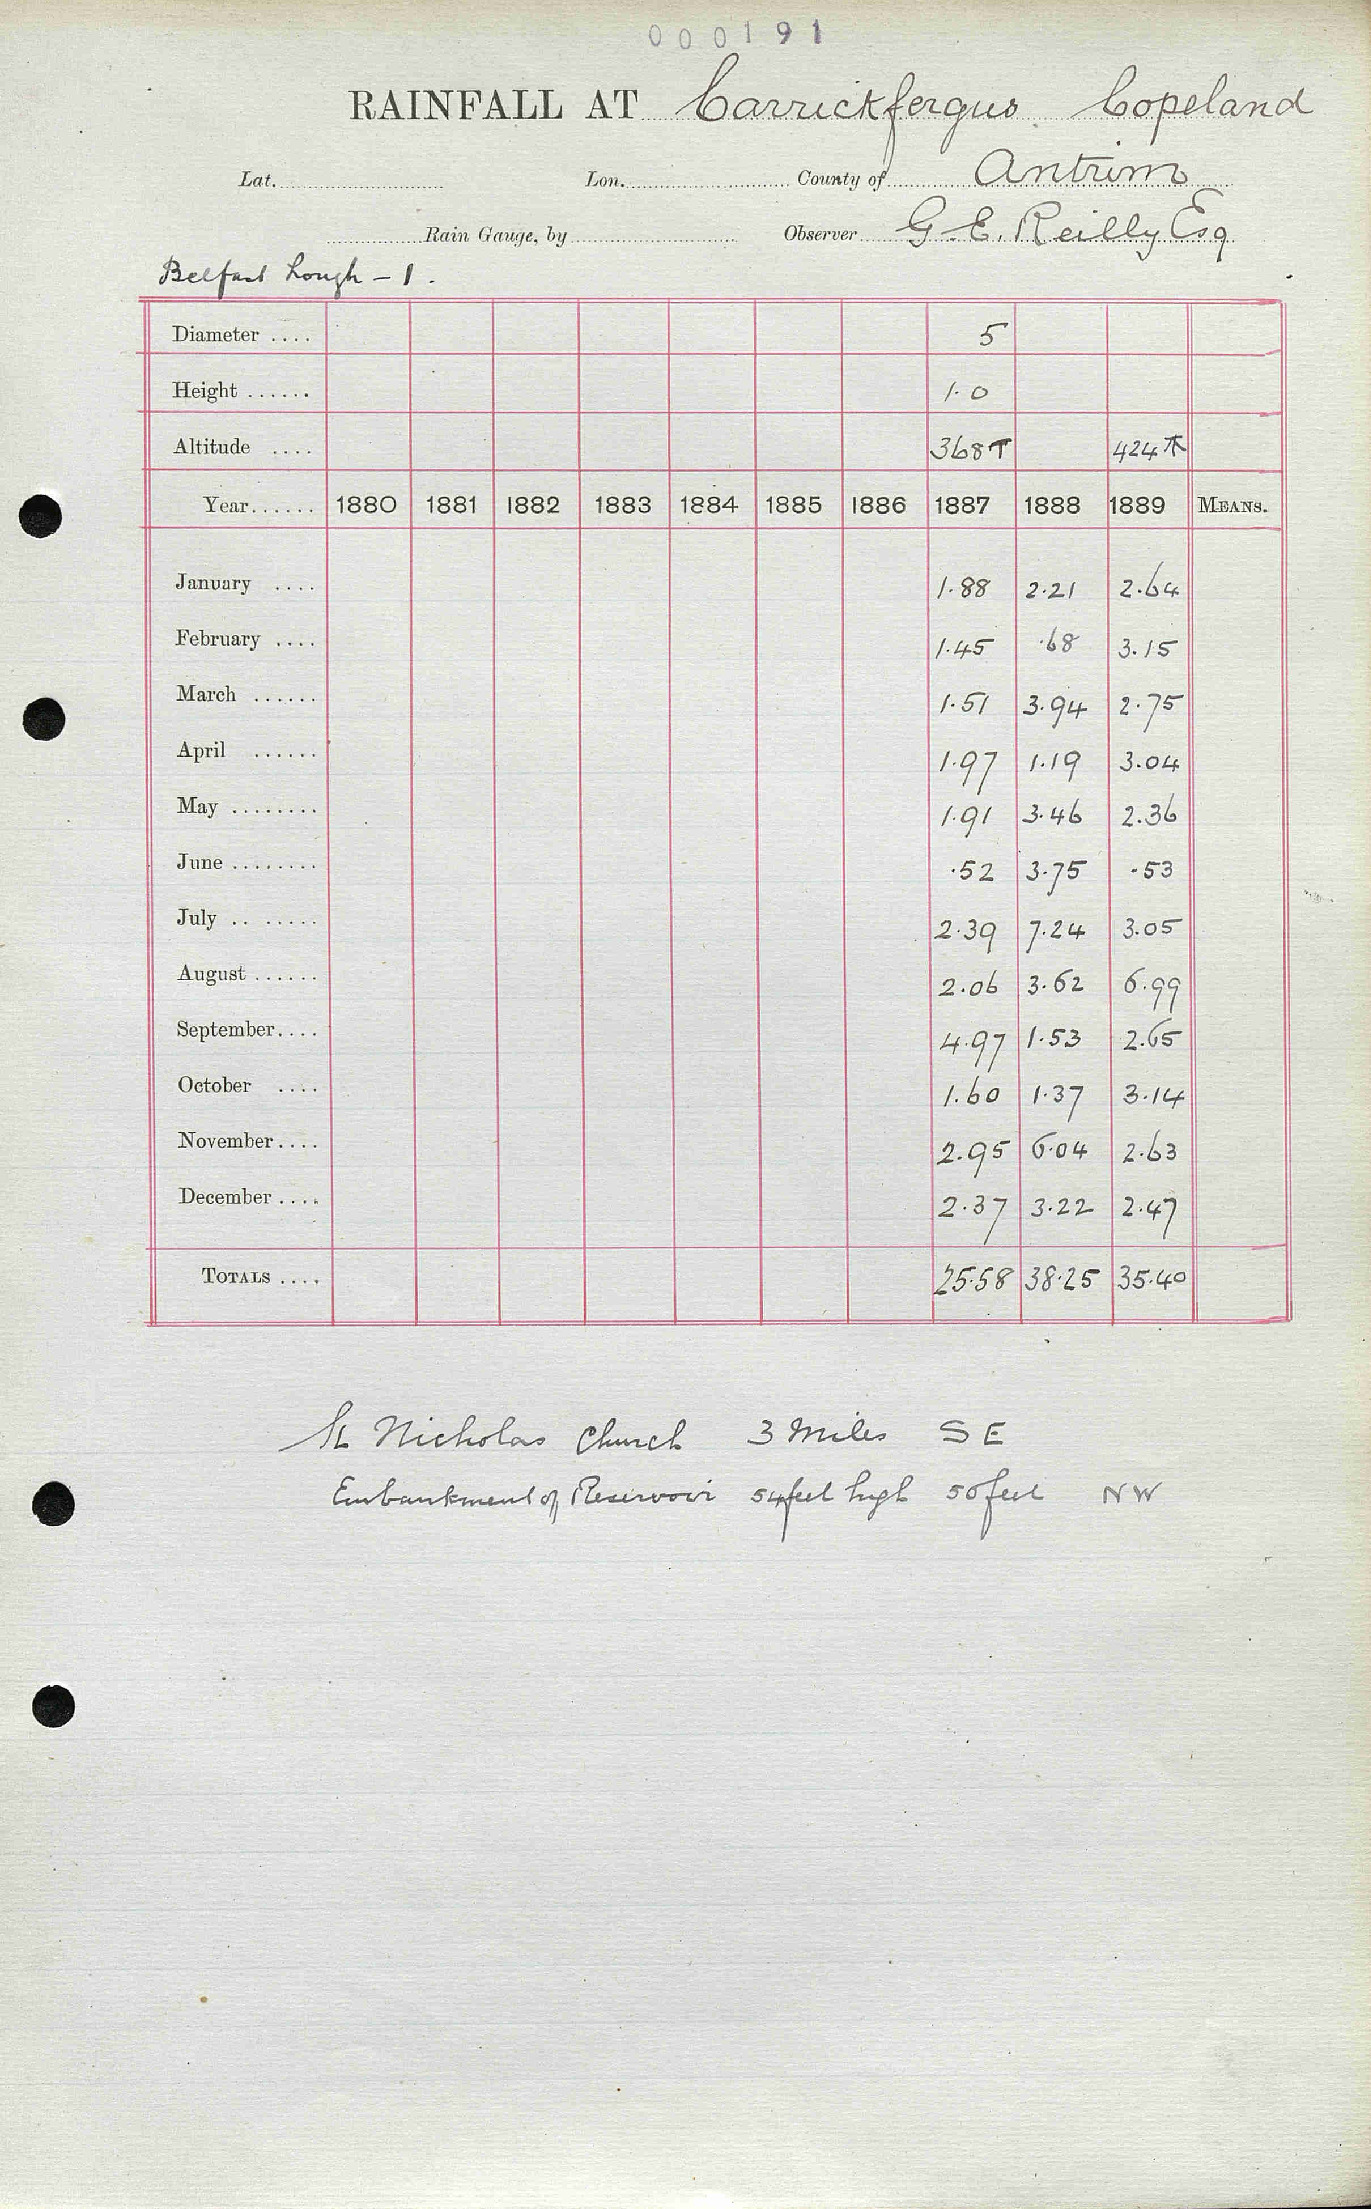 000191
RAINFALL AT Carrickfergus Copeland
Lat. Lon. County of Antrim
Rain Gauge, by Observer G. E. Reilly Esq
Belfast Lough - 1.
Diameter .... 5
Height ...... 1.0
Altitude .... 368 T 424 T
Year...... 1880 1881 1882 1883 1884 1885 1886 1887 1888 1889 MEANS.
January .... 1.88 2.21 2.64
February .... 1.45 .68 3.15
March ...... 1.51 3.94 2.75
April ...... 1.97 1.19 3.04
May ........ 1.91 3.46 2.36
June ........ .52 3.75 .53
July .. ...... 2.39 7.24 3.05
August ...... 2.06 3.62 6.99
September.... 4.97 1.53 2.65
October .... 1.60 1.37 3.14
November.... 2.95 6.04 2.63
December .... 2.37 3.22 2.47
TOTALS .... 25.58 38.25 35.40
St Nicholas Church 3 Miles SE
Embankment of Reservoir 54 feet high 50 feet NW